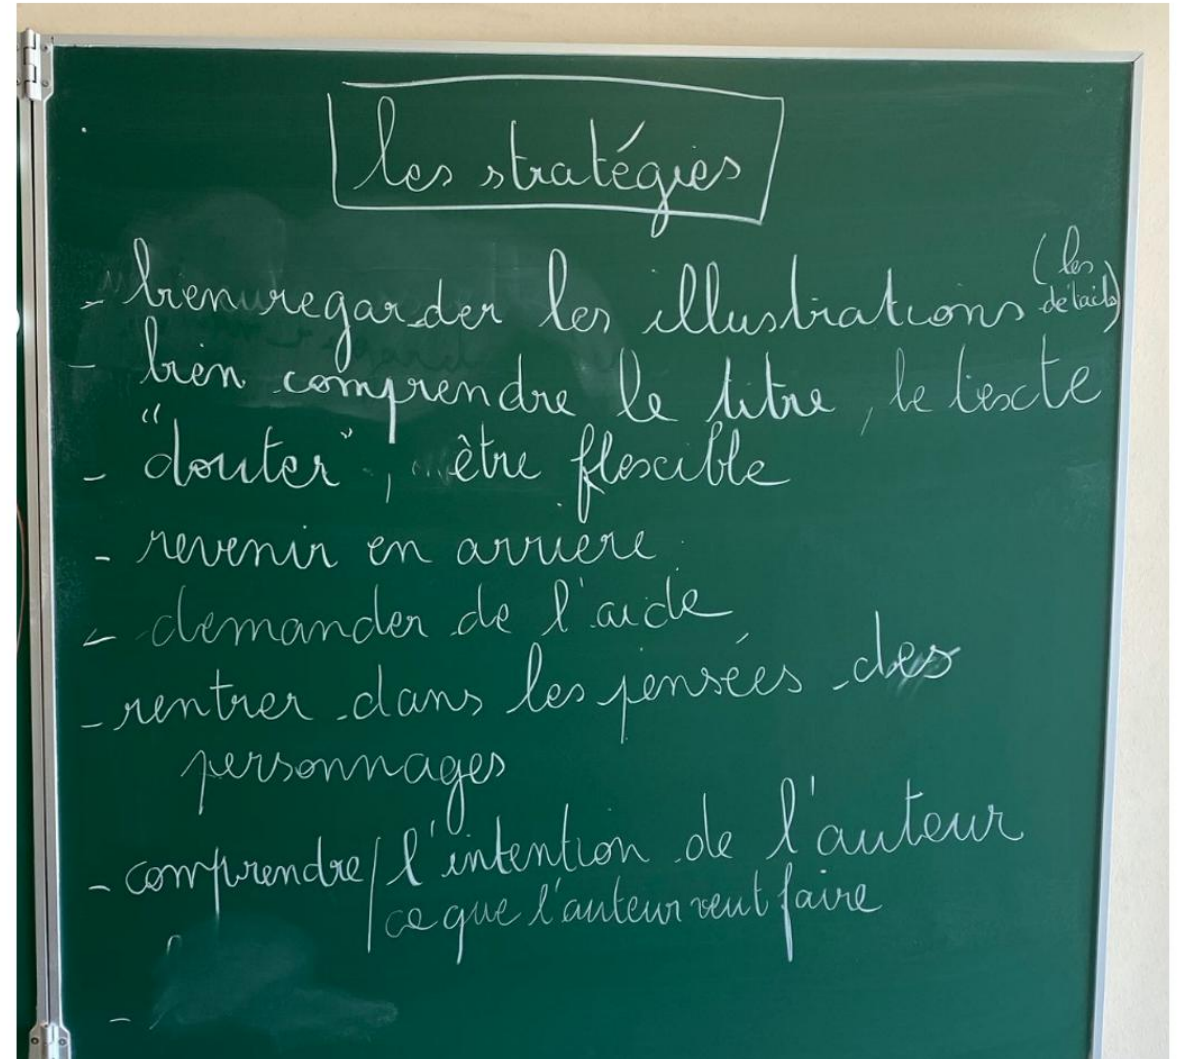 les stratégies
- bien regarder les illustrations (les détails)
- bien comprendre le titre, le texte
- "douter", être flexible
- revenir en arrière
- demander de l'aide
- rentrer dans les pensées des
personnages
- comprendre / l'intention de l'auteur
/ ce que l'auteur veut faire
-